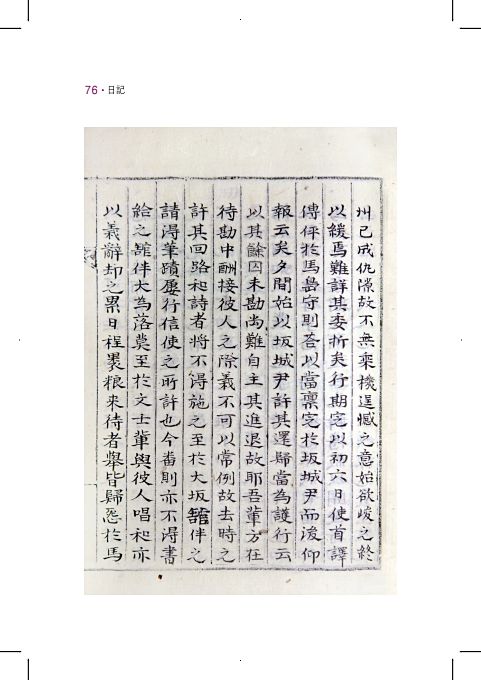 76 · 日記
州已成仇隙故不無乘機逞憾之意始欲峻之終
以緩焉難詳其委折矣行期定以初六日使首譯
傳俘於馬島守則答以當稟定於坂城尹而後仰
報云矣夕間始以坂城尹許其還歸當為護行云
以其餘囚未勘尚難自主其進退故耶吾輩方在
待勘中酬接彼人之除義不可以常例故去時之
許其回路和詩者將不得施之至於大坂館伴之
請得筆蹟屢行信使之所許也今番則亦不得書
給之館伴大為落莫至於文士輩與彼人唱和亦
以義辭却之累日程裹粮来待者舉皆歸怨於馬